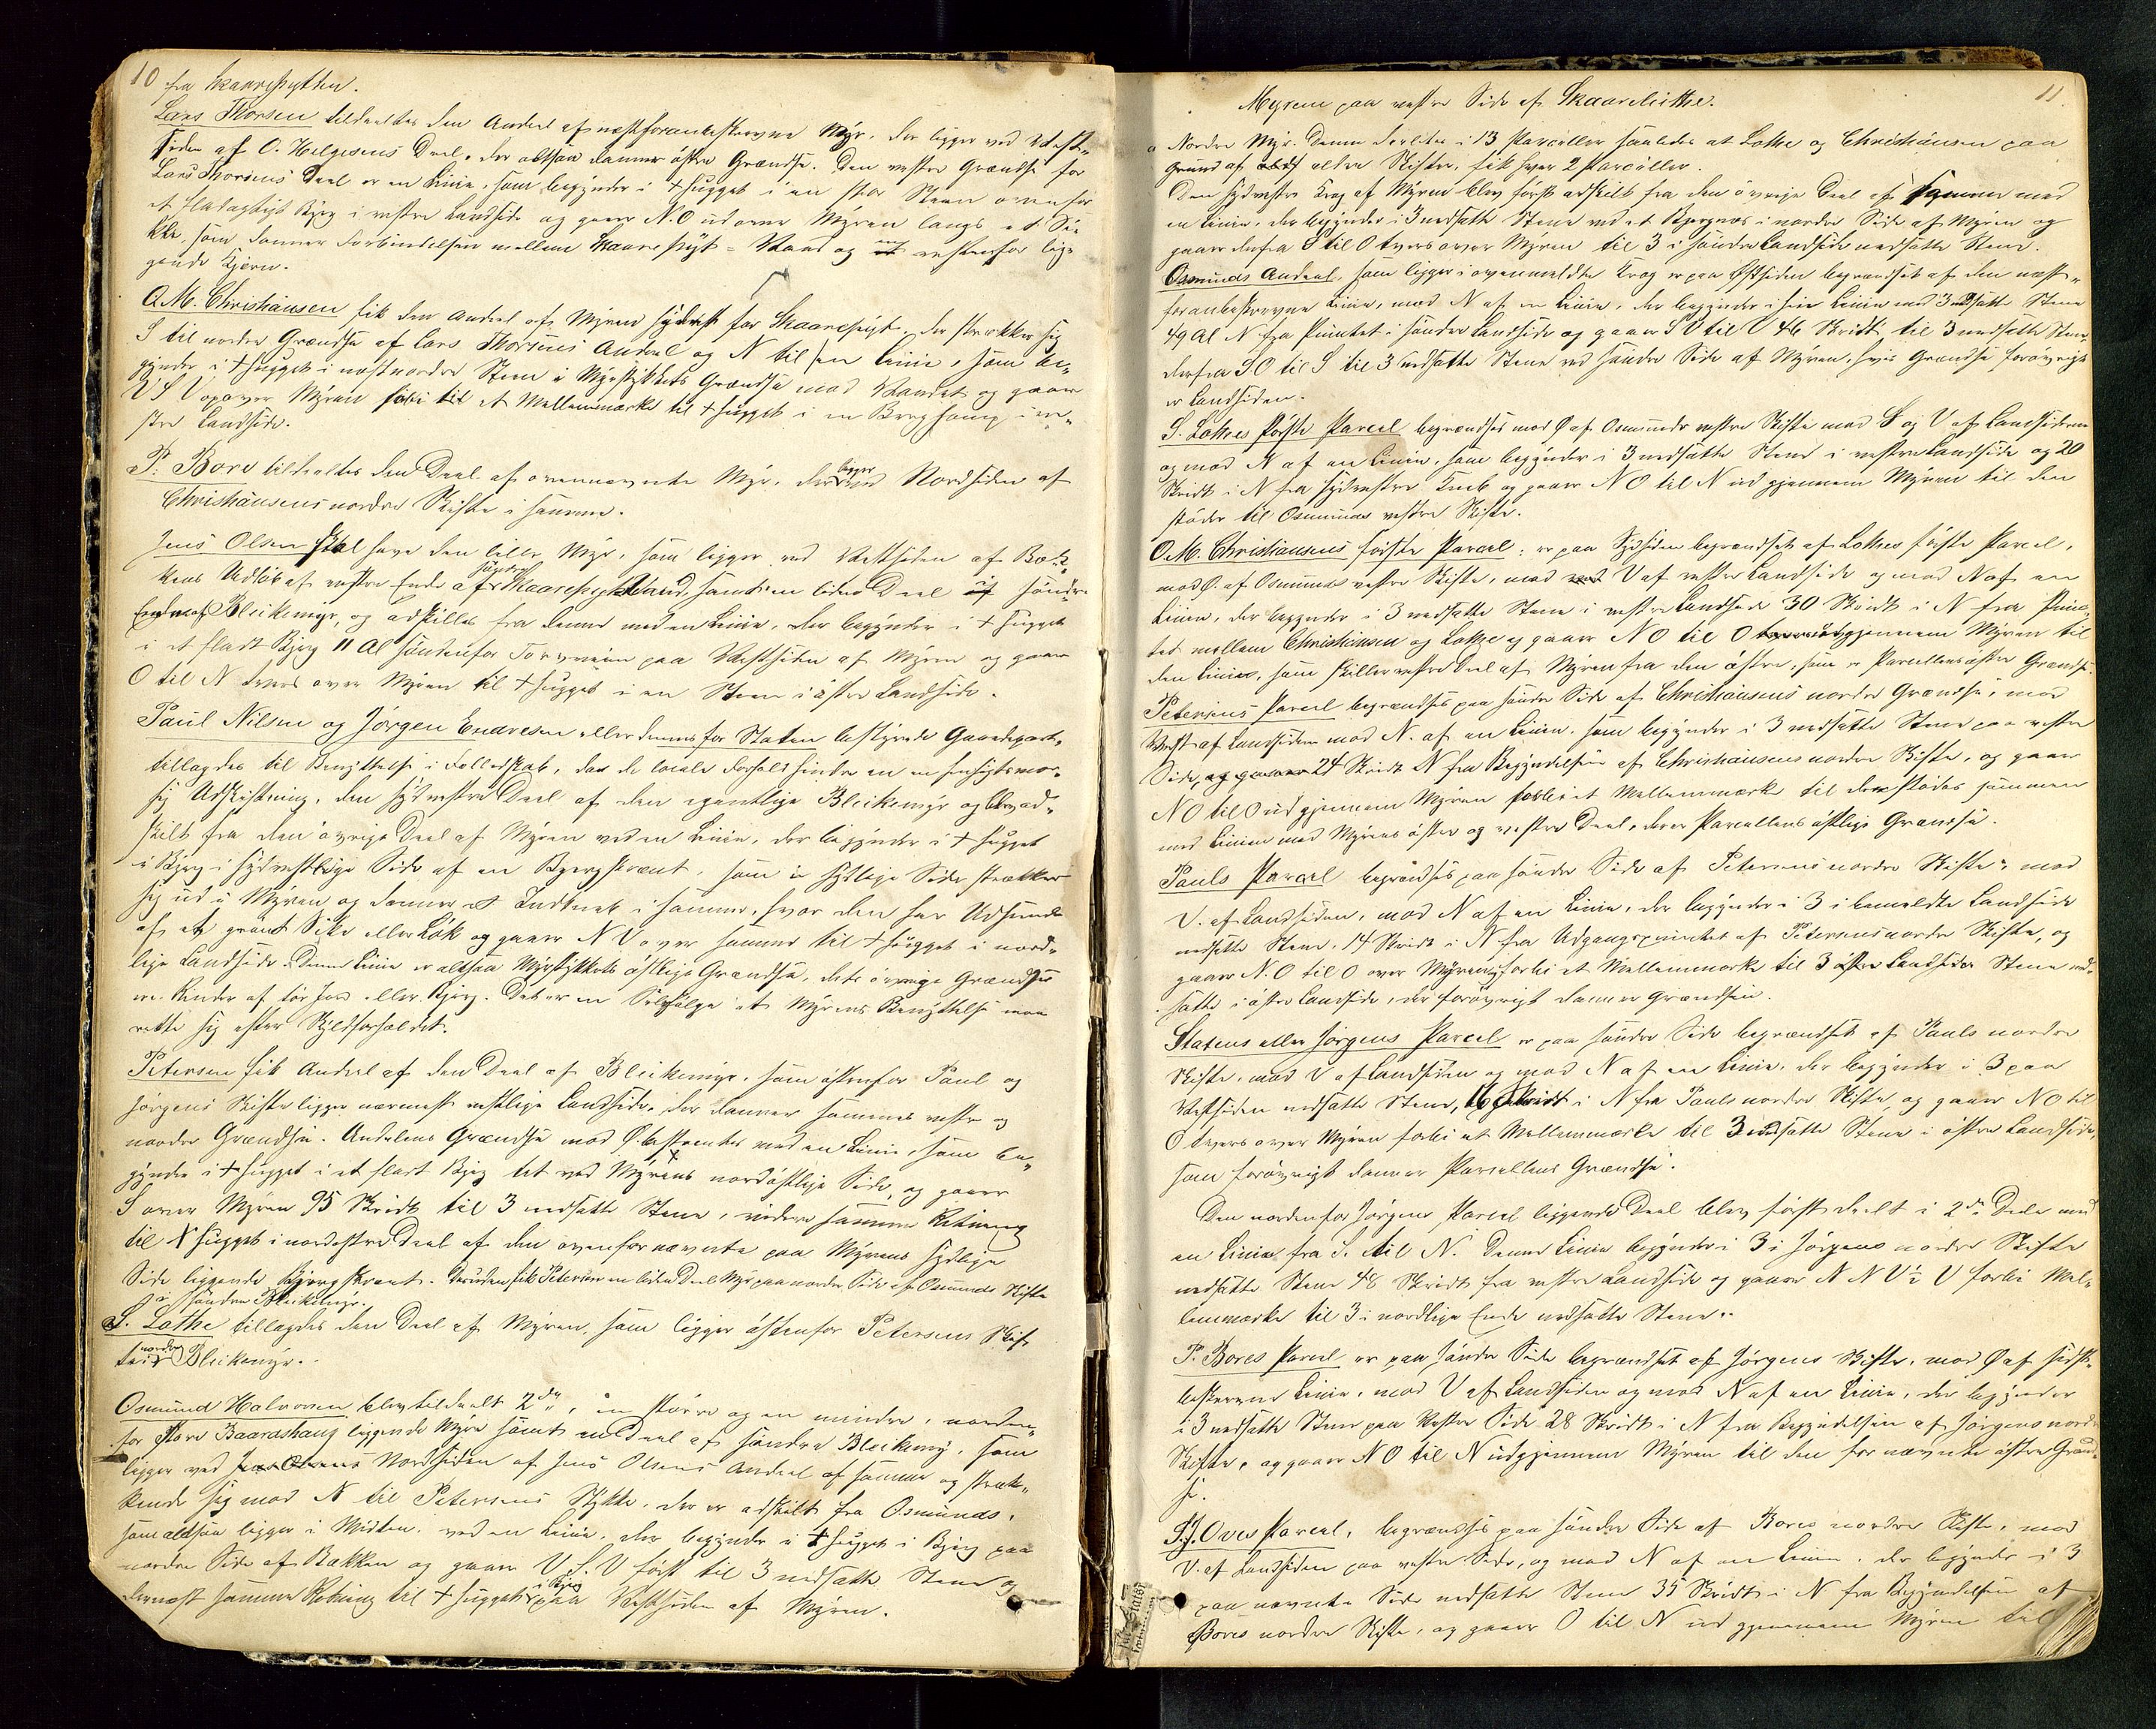 10 fra Skaarepytten.
Lars Thorsen tildeeltes den Andeel af næstforanbeskrevne Myr, der ligger ved Vest-
siden af O. Helgesens Deel, der altsaa danner östre Grændse. Den vestre Grændse for
Lars Thorsens Deel er en Linie, som begynder i + hugget i en stor Steen ovenfor
et fladagtigt Bjerg i vestre Landside og gaaer N.O ud over Myren langs et Si-
kke, som danner Forbindelsen mellem Skaarepyt-Vand og et vestenfor lig-
gende Kjern.
O. M. Christiansen fik den Andeel af Myren sydvest for Skaarepyt, der strækker sig
S til nordre Grændse af Lars Thorsens Andeel og N til en Linie, som be-
gynder i + hugget i næstnordre Steen i Myrstykkets Grændse mod Vandet og gaaer
V S V opover Myren forbi et Mellemmærke til + hugget i en Berghamp i ve-
stre Landside.
P. Bore tildeeltes den Deel af ovennævnte Myr, der ligger ved Nordsiden af
Christiansens nordre Skifte i samme.
Jens Olsen skal have den lille Myr, som ligger ved Vestsiden af Bæk-
kens Udlöb af vestre Ende af söndre Skaarepyt Vand, samt en liden Deel af söndre
Ende af Bleikemyr, og adskilles fra denne med en Linie, der begynder i + hugget
i et fladt Bjerg 11 Al söndenfor Torvmuren paa Vestsiden af Myren og gaaer
O til N tvers over Myren til + hugget i en Steen i östre Landside.
Paul Nilsen og Jörgen Endresen eller denne for Staten bestyrede Gaardepart
tillagdes til Benyttelse i Fælledskab, da de locale Forhold hindre en hensigtsmæs-
sig Udskiftning, den sydvestre Deel af den egentlige Bleikemyr og blev ad-
skilt fra den övrige Deel af Myren ved en Linie, der begynder i + hugget
i Bjerg i sydvestlige Side af en Bjergskrænt, som i sydlige Side strækker
sig ud i Myren og danner et Indknæk i samme, hvor den har Udspring
af et grönt Sike eller Lok og gaaer N V over samme til + hugget i nord-
lige Landside. Denne Linie er altsaa Myrstykkets östlige Grændse, dets övrige Grændser
ere Render af tör Jord eller Bjerg. Det er en Selvfölge at Myrens Benyttelse maa
rette sig efter Skyldforholdet.
Petersen fik Andeel af den Deel af Bleikemyr, som östenfor Paul og
Jörgens Skifte ligger nærmest vestlige Landside, der danner sammes vestre og
nordre Grændse. Andelens Grændse mod Ø. bestemtes ved en Linie, som be-
gynder i + hugget i et fladt Bjerg tet ved Myrens nordöstlige Side, og gaaer
S over Myren 95 Skridt til 3 nedsatte Stene, videre samme Retning
til + hugget i nordostre Deel af den ovenfor nævnte paa Myrens sydlige
Side liggende Bjergskrænt. Desuden fik Petersen en liden Deel Myr paa nordre Side af Osmunds Skifte
i söndre Bleikemyr.
S. Lothe tillagdes den Deel af Myren, som ligger östenfor Petersens Skif-
te i nordre Bleikemyr.
Osmund Halvorsen blev tildeelt 2de, en större og en mindre, norden-
for Store Baardshaug liggende Myre samt en Deel af söndre Bleikemy, som
ligger ved Nordsiden af Jens Olsens Andeel af samme og stræk-
kende sig mod N til Petersens Stykke, der er adskilt fra Osmunds,
som altsaa ligger i Midten, ved en Linie, der begynder i + hugget i Bjerg paa
nordre Side af Bækken og gaaer V. S. V först til 3 nedsatte Stene og
dernæst samme Retning til + hugget i Bjerg paa Vestsiden af Myren.
11
Myrene paa vestre Side af Skaareleithe.
a Nordre Myr. Denne deeltes i 13 Parceller saaledes at Lothe og Christiansen paa
Grund af ældre Skifter, fik hver 2 Parceller.
Den sydvestre Krog af Myren blev först adskilt fra den övrige Deel af samme med
en Linie, der begynder i 3 nedsatte Stene ved et Bjergnæs i nordre Side af Myren og
gaaer derfra S til O tvers over Myren til 3 i söndre Landside nedsatte Stene.
Osmunds Andeel, som ligger i ovenmeldte Krog er paa Østsiden begrændset af den næst-
foranbeskrevne Linie, mod N af en Linie, der begynder i hiin Linie med 3 nedsatte Stene
49 Al N fra Punctet i söndre Landside og gaaer S V til V 46 Skridt til 3 nedsatte Stene,
derfra S O til S til 3 nedsatte Stene ved söndre Side af Myren, hvis Grændse forövrigt
er Landsiden.
S. Lothes förste Parcel begrændses mod Ø af Osmunds vestre Skifte mod S og V af Landsiderne
og mod N af en Linie, som begynder i 3 nedsatte Stene i vestre Landside og 20
Skridt i N fra sydvestre Knæk og gaaer N O til N ud gjennem Myren til den
stöder til Osmunds vestre Skifte.
O. M. Christiansens förste Parcel: er paa Sydsiden begrændset af Lothes förste Parcel,
mod Ø. af Osmunds vestre Skifte, mod V af vestre Landside og mod N af en
Linie, der begynder i 3 nedsatte Stene i vestre Landside 30 Skridt i N fra Punc-
tet mellem Christiansen og Lothe og gaaer N O til O udgjennem Myren til
den Linie, som skiller vestre Deel af Myren fra den östre, som er Parcellens östre Grændse.
Petersens Parcel begrændses paa söndre Side af Christiansens nordre Grændse, mod
Vest af Landsiden mod N. af en Linie, som begynder i 3 nedsatte Stene paa vestre
Side, og gaaer 24 Skridt N fra Begyndelsen af Christiansens nordre Skifte, og gaaer
N O til O ud gjennem Myren forbi et Mellemmærke til den stöder sammen
med Linien mod Myrens östre og vestre Deel, der er Parcellens östlige Grændse.
Pauls Parcel begrændses paa söndre Side af Petersens nordre Skifte, mod
V. af Landsiden, mod N af en Linie, der begynder i 3 i bemeldte Landside
nedsatte Stene, 14 Skridt i N fra Udgangspunctet af Petersens nordre Skifte, og
gaaer N. O til O over Myren, forbi et Mellemmærke til 3 östre Landsides Stene ned-
satte i östre Landside, der forövrigt danner Grændsen.
Statens eller Jörgens Parcel er paa söndre Side begrændset af Pauls nordre
Skifte, mod V af Landsiden og mod N af en Linie, der begynder i 3 paa
Vestsiden nedsatte Stene, 16 Skridt i N fra Pauls nordre Skifte, og gaaer N O til
O tvers over Myren forbi et Mellemmærke til 3 nedsatte Stene i östre Landside,
som forövrigt danner Parcellens Grændse.
Den nordenfor Jörgens Parcel liggende Deel blev först deelt i 2de Dele med
en Linie fra S. til N. Denne Linie begynder i 3 i Jörgens nordre Skifte
nedsatte Stene 48 Skridt fra vestre Landside og gaaer N N V ½ V forbi Mel-
lemmærke til 3 i nordlige Ende nedsatte Stene.
P. Bores Parcel er paa söndre Side begrændset af Jörgens Skifte, mod Ø af sidst-
beskrevne Linie, mod V af Landsiden og mod N af en Linie, der begynder
i 3 nedsatte Stene paa Vestre Side 28 Skridt i N fra Begyndelsen af Jörgens nord
Skifte, og gaaer N O til N udgjennem Myren til den fornævnte östre Grænd-
se.
S. J. Oves Parcel, begrændses paa söndre Side af Bores nordre Skifte, mod
V. af Landsiden paa vestre Side, og mod N af en Linie, der begynder i 3
paa nævnte Side nedsatte Stene 35 Skridt i N fra Begyndelsen af
Bores nordre Skifte, og gaaer O til N ud gjennem Myren til